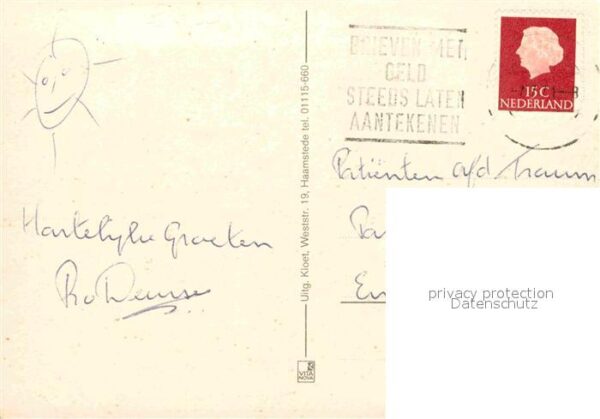 BRIEVEN MET
GELD
STEEDS LATEN
AANTEKENEN
15C
NEDERLAND
Hartelijke Groeten
Uitg. Kloet, Weststr. 19, Haamstede tel. 01115-660
VITA
NOVA
Patiënten afd Traum
privacy protection
Datenschutz